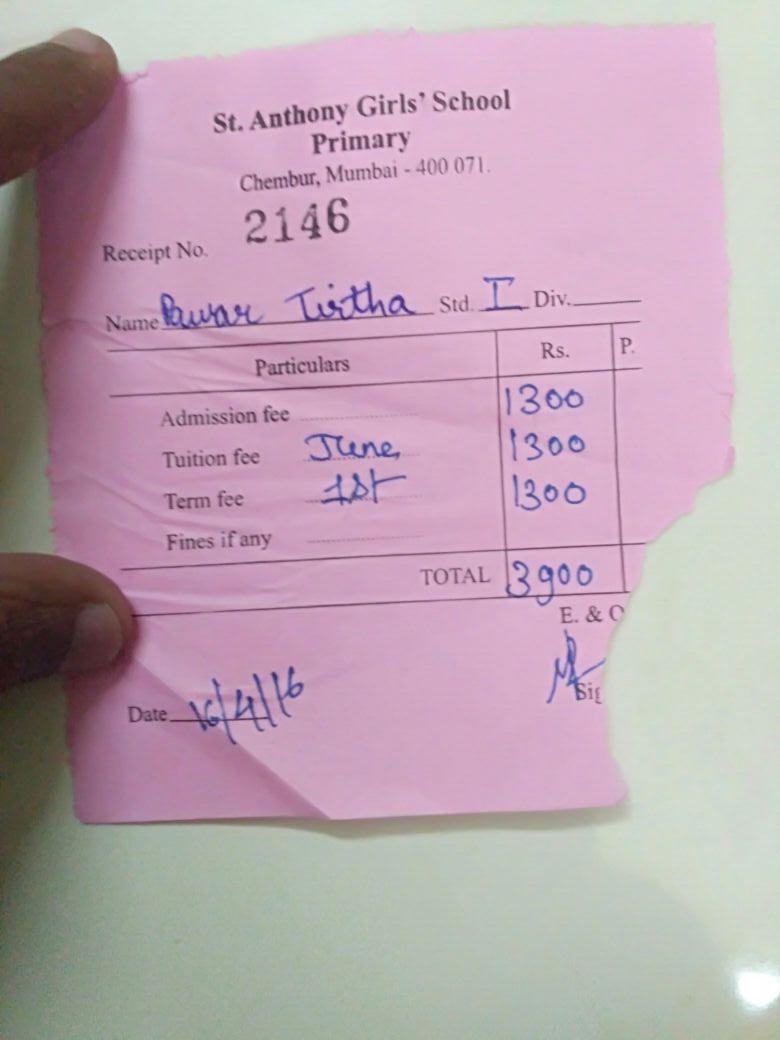 St. Anthony Girls' School
Primary
Chembur, Mumbai - 400 071.
Receipt No. 2146
Name Pawar Tirtha Std. I Div.
Particulars Rs. P.
Admission fee 1300
Tuition fee June, 1300
Term fee 1st 1300
Fines if any
TOTAL 3900
E. & O
Sig
Date 16/4/16